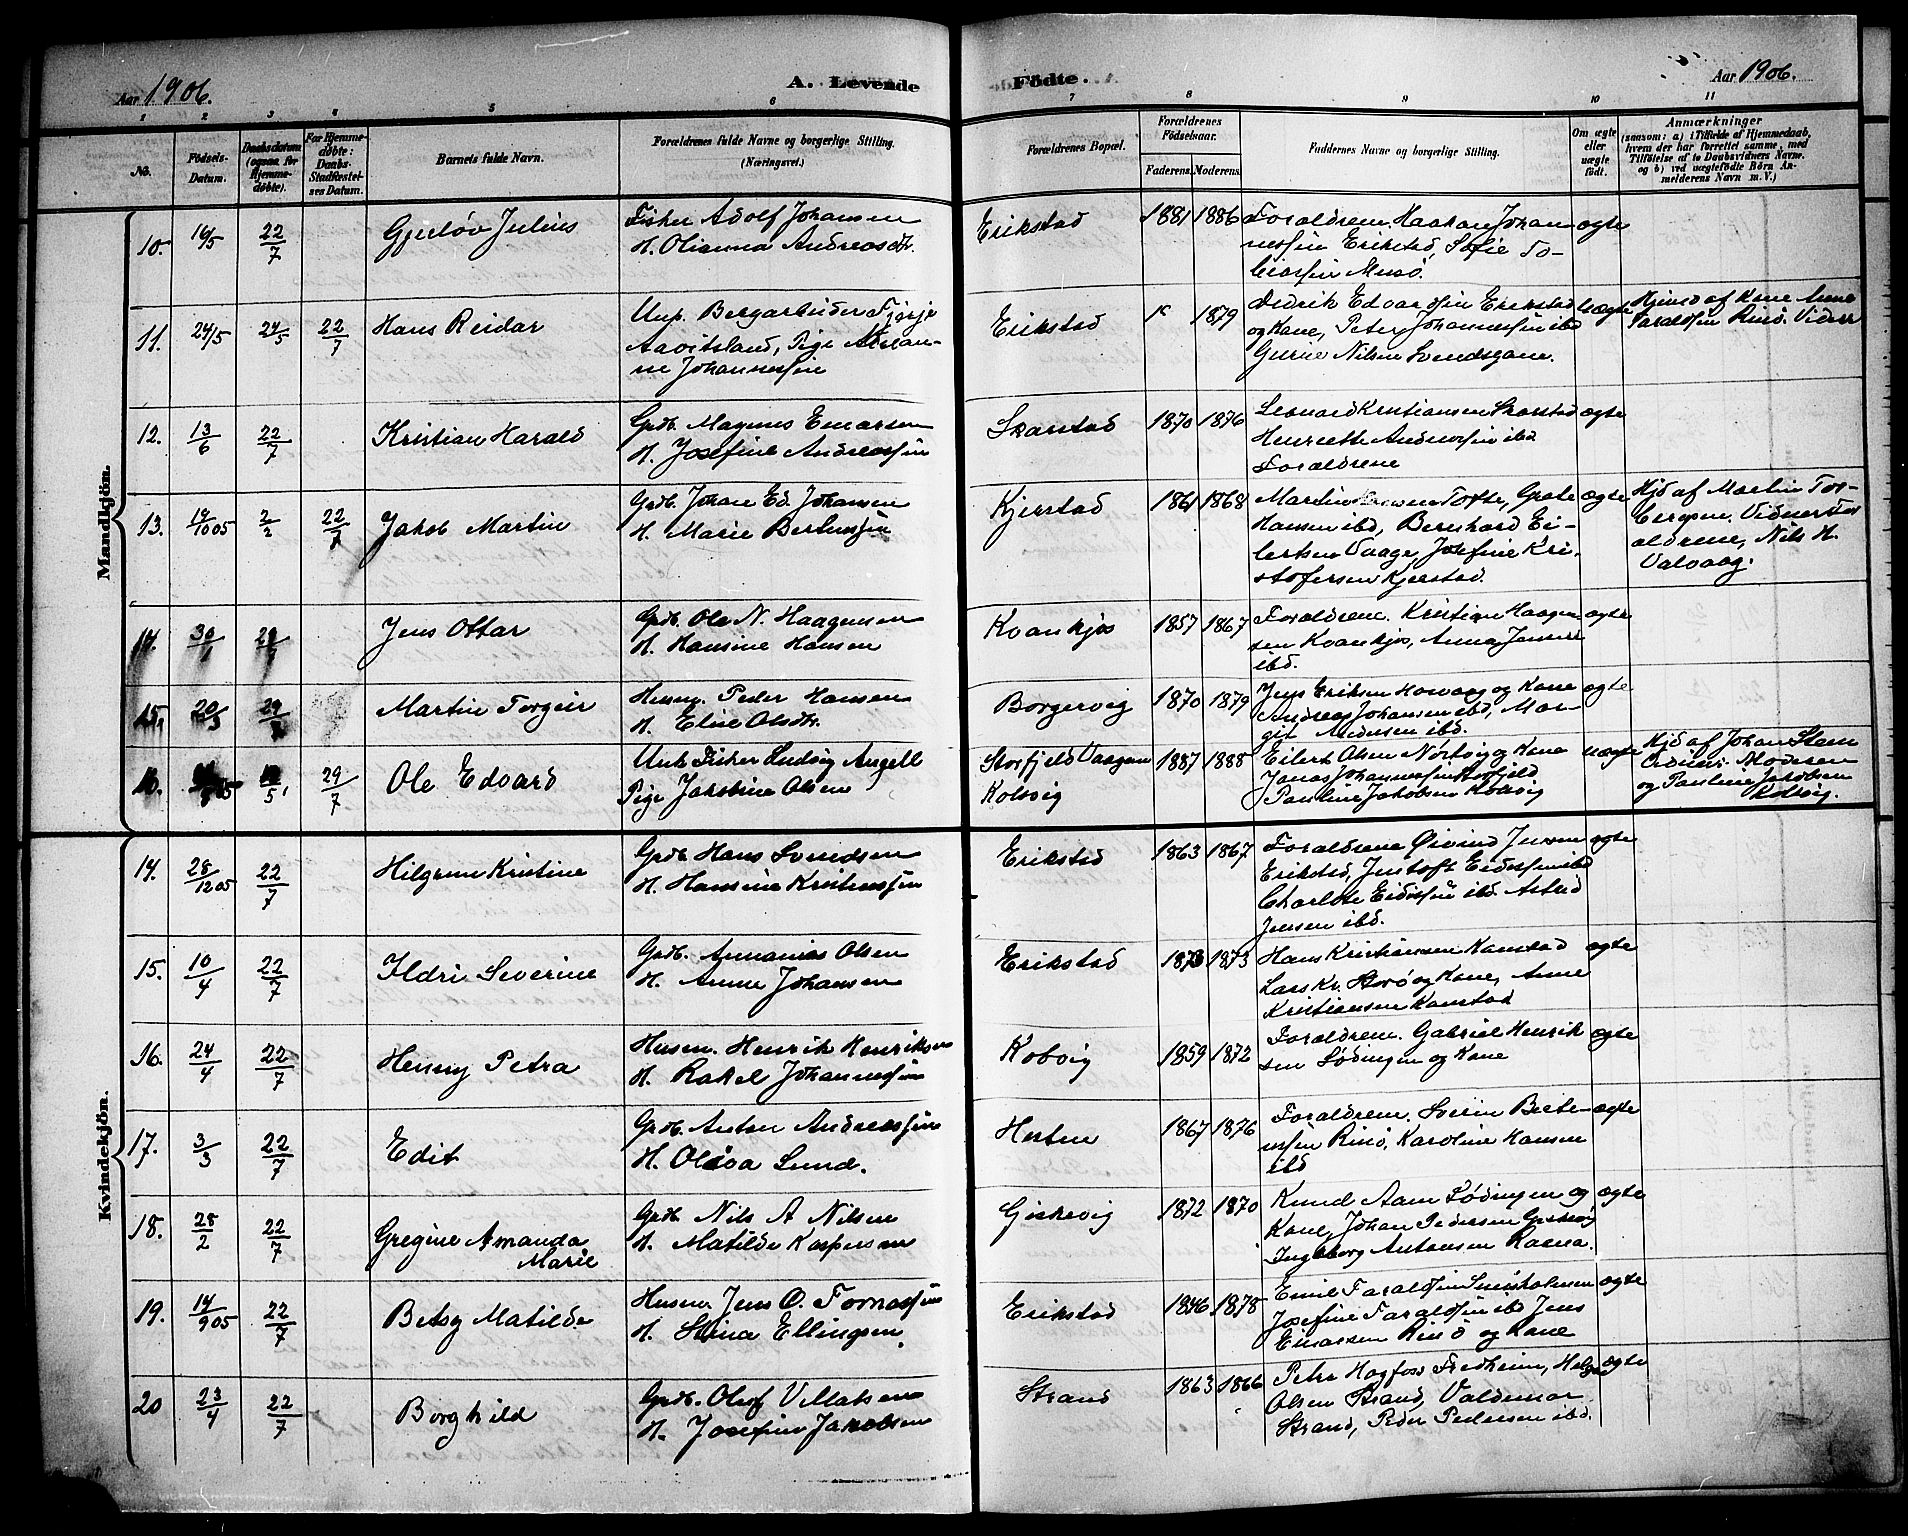 Aar 1906.
A. Levende
Födte.
Aar 1906.
1 2 3 4 5 6 7 8 9 10 11
No.
Födsels-Datum.
Daabsdatum (ogsaa for Hjemmedöbte).
For Hjemmedöbte: Daabs-Stadfæstelses Datum.
Barnets fulde Navn.
Forældrenes fulde Navne og borgerlige Stilling. (Næringsvei.)
Forældrenes Bopæl.
Forældrenes Födselsaar.
Faderens. Moderens.
Faddernes Navne og borgerlige Stilling.
Om ægte eller uægte födt.
Anmærkninger
(saasom: a) i Tilfælde af Hjemmedaab, hvem der har forrettet samme, med Tilföielse af to Daabsvidners Navne. og b) ved uægtefödte Börn Anmelderens Navn m. V.)
Mandkjön.
10. 16/5 22/7 Gjerløv Julius
Fisker Adolf Johansen
H. Olianna Andreasdt.
Erikstad 1881 1886
Foraldrene. Haakon Johan
nessen Erikstad, Sofie To-
biassen
ægte
11. 24/5 24/5 22/7 Hans Reidar
Unp. Bergarbeider
Aavitsland, Pige
ne Johannessen
Erikstad 1879
Didrik Edvardsen Erikstad
og Kone, Peter Johannessen ibd
Gurine Nilsen
uægte
Hjmd af Kone Anne
Taraldsen Rinø. Vidner
12. 13/6 22/7 Kristian Harald
Grdb. Magnus Enarsen
H. Josefine Andreassen
Skarstad 1870 1876
Leonard Kristiansen Skarstad
Henriette Andreassen ibd
Foraldrene
ægte
13. 19/10 05 2/2 22/7 Jakob Martin
Grdb. Johan Ed. Johansen
H. Marie Bertensen
Kjerstad 1861 1868
Martin Tofte, Grete
Hansen ibd, Bernhard Ei-
lertsen Vaage, Josefine Kri-
stofersen Kjerstad.
ægte
Hjd af Martin Tor-
bergsen. Vidner For
aldrene, Nils H.
Valvaag.
14. 30 29 Jens Ottar
Grdb. Ole N. Haagensen
H. Hansine Hansen
Kvankjos 1857 1867
Foraldrene. Kristian Haagen
sen Kvankjos, Anna Jensen
ibd.
ægte
15. 20/3 29/7 Martin Torgeir
Husm. Peder Hansen
H. Elise Olsdtr.
Borgervig 1870 1879
Jens Eriksen og Kone
Andreas Johansen ibd, Mar-
git Andersen ibd.
ægte
16. 05 29/7 Ole Edvard
Unk. Fisker Ludvig Angell
Pige Jakobine Olsen
Storfjeld Vaagan
Kolsvig
1887 1888
Eilert Olsen og Kone
Jonas Johannessen Storfjeld
Pauline Jakobsen Kolsvig
uægte
Hjd af Johan Steen
Moderen
og Pauline Jakobsen
Kolsvig.
Kvindekjön.
14. 28/12 05 22/7 Hilgunn Kristine
Grdb. Hans Svendsen
H. Hansine Kristensen
Erikstad 1863 1867
Foraldrene Øivind Jensen
Erikstad, Jentoft Eidissen ibd
Charlotte Eidissen ibd. Astrid
Jensen ibd.
ægte
15. 10/4 22/7 Ildri Severine
Grdb. Annanias Olsen
H. Anne Johansen
Erikstad 1873 1873
Hans Kristiansen Kanstad
Lars Kr. Storø og Kone, Anne
Kristiansen Kanstad
ægte
16. 24/4 22/7 Henny Petra
Husm. Henrik Henriksen
H. Rakel Johannessen
Kobvig 1859 1872
Foraldrene. Gabriel Henrik
sen Lødingen og Kone
ægte
17. 3/3 22/7 Edit
Grdb. Anton Andreassen
H. Olava Lund.
Hesten 1867 1876
Foraldrene.
Rinø, Karoline Hansen
ibd
ægte
18. 28/2 22/7 Gregine Amanda
Marie
Grdb. Nils A Nilsen
H. Matilde Kaspersen
Giskevig 1872 1870
Knud Aam Lødingen og
Kone, Johan Pedersen Giskevig
Ingeborg Antonsen
ægte
19. 14/9 05 22/7 Betsy Matilde
Husm. Jens O. Tornassen
H. Stina Ellingsen.
Erikstad 1846 1878
Emil Taraldsen
Josefine Taraldsen ibd Jens
Enarsen Rinø og Kone
ægte
20 23/4 22/7 Borghild
Grdb. Olof V. Matsen
H. Josefine Jakobsen
Strand 1863 1866
Petra Hagfors Fredheim, Helga
Olsen Strand, Valdemar
Strand, Peder Pedersen ibd.
ægte